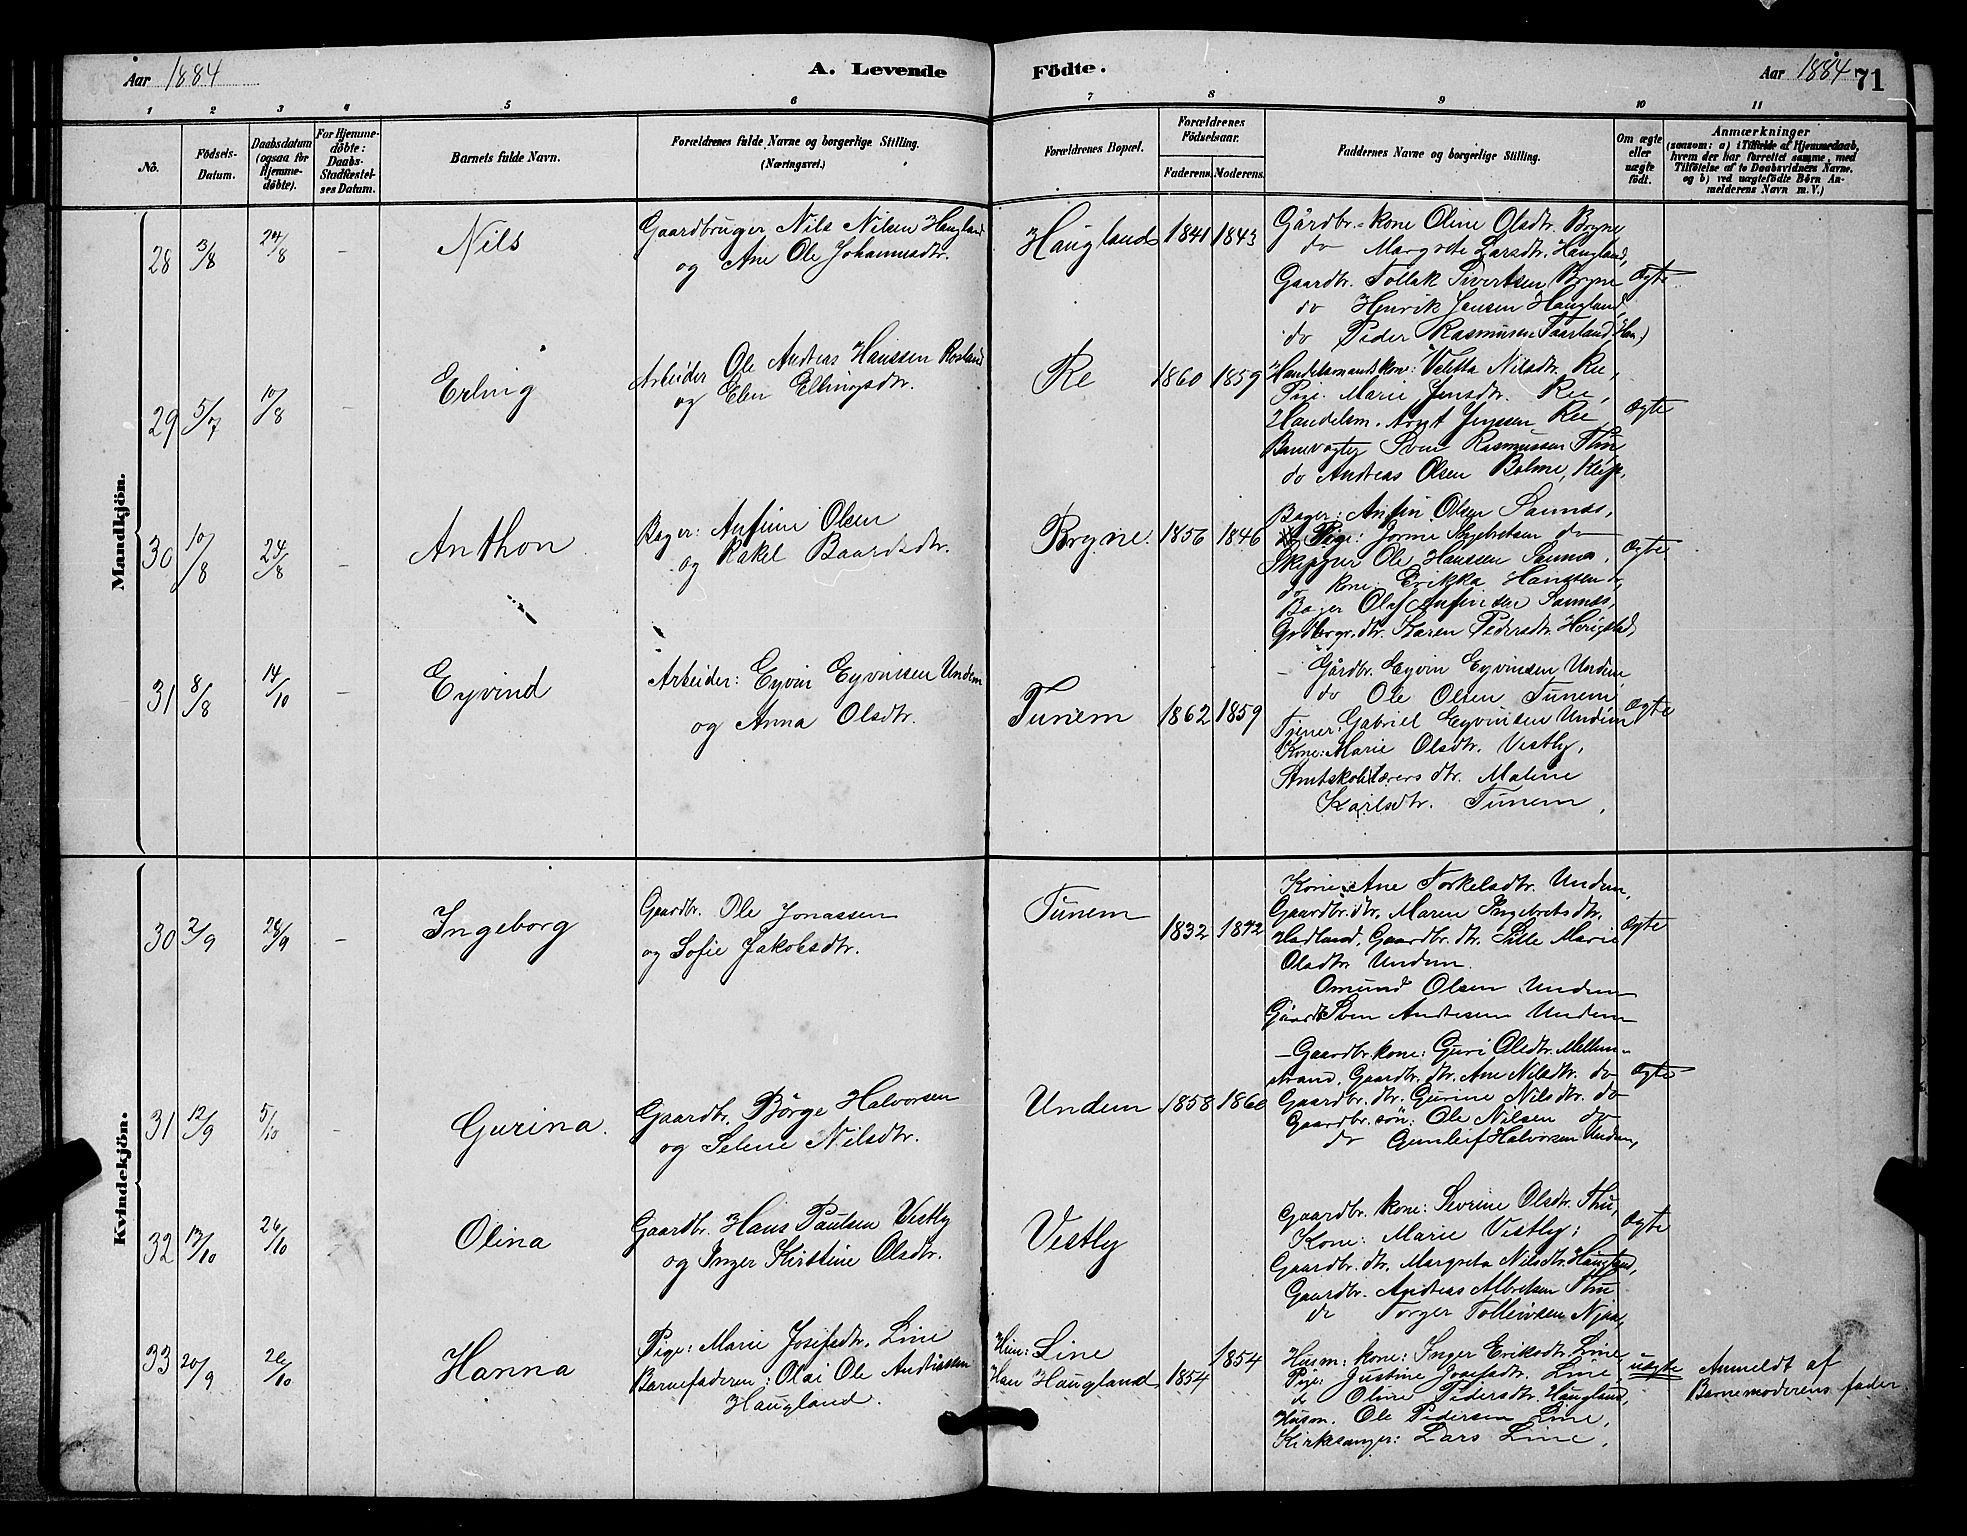 Aar 1884
A. Levende Födte.
Aar 1884 71
1 2 3 4 5 6 7 8 9 10 11
No.
Födsels-Datum.
Daabsdatum (ogsaa for Hjemme-döbte).
For Hjemme-döbte: Daabs-Stadfæstel-ses Datum.
Barnets fulde Navn.
Forældrenes fulde Navne og borgerlige Stilling.
(Næringsvei.)
Forældrenes Bopæl.
Forældrenes Födselsaar.
Faderens. Moderens.
Faddernes Navne og borgerlige Stilling.
Om ægte eller uægte födt.
Anmærkninger
(saasom: a) i Tilfælde af Hjemmedaab,
hvem der har forrettet samme, med
Tilföielse af to Daabsvidners Navne.
og b) ved uægtefödte Börn An-
melderens Navn m. V.)
Mandkjön.
28 3/8 24/8 - Nils
Gaardbruger Nils Nilsen Haugland
og Ane Ole Johannesdtr.
Haugland 1841 1843
Gårdbr. kone Oline Olsdtr. Bryne,
do Margrete Larsdtr. Haugland,
Gaardbr. Tollak Sivertsen Bryne
do Henrik Jensen Haugland,
do Peder Rasmusen Taarland
Ægte
29 5/7 10/8 - Erling
Arbeider Ole Andreas Hanssen Rosland
og Elen Ellingsdtr.
Re 1860 1859
Handelsmands kone: Veletta Nilsdtr. Ree,
Pige Marie Jensdtr. Ree,
Handelsm. Arnt Jenssen Ree
Banevogter Sven Rasmussen Thu
do Andreas Olsen Bolme, Klep.
Ægte
30 10/8 24/8 - Anthon
Bager: Anfinn Olsen
og Rakel Baardsdtr.
Bryne. 1856 1846
Bager: Anfin Olsen Sannes,
Pige: do
Skipper Ole Hanssen
do kone: Erikka Hanssen do
Bager Olaf Anfindsen Sannes,
Karen Pedersdtr. Herigstad,
Ægte
31 8/8 14/10 - Eyvind
Arbeider: Eyvin Eyvinsen Undem
og Anna Olsdtr.
Tunem 1862 1859
- Gårdbr. Eyvin Eyvindsen Undem
do Ole Olsen Tunem
Tjener. Gabriel Eyvindsen Undem
Kone: Marie Olsdtr. Vestly,
Amtskolelærers dtr. Malene
Karlsdtr. Tunem,
Ægte
Kvindekjön.
30 2/9 28/9 - Ingeborg
Gaardbr. Ole Jonassen
og Sofie Jakobsdtr.
Tunem 1832 1842
Kone: Ane Torkelsdtr. Undem,
Gaardbr. dtr. Maren Ingebretsdtr.
Hadland, Gaardbr. dtr. Sille Marie
Olsdtr. Undem.
Omund Olsen Undem
Gaardbr. Sven Andresen Undem
Ægte
31 12/9 5/10 - Gurina.
Gaardbr. Börge Halvorsen
og Selene Nilsdtr.
Undem 1858 1860
- Gaardbr. kone: Guri Olsdtr. Mellum-
strand, Gaardbr. dtr. Ane Nilsdtr. do
Gaardbr. dtr. Gurine Nilsdtr. do
Gaardbr. sön: Ole Nilsen do
do Gunleif Halvorsen Undem,
Ægte
32 17/10 26/10 - Olina
Gaardbr. Hans Paulsen Vestly
og Inger Kirstine Olsdtr.
Vestly
Gaardbr. kone: Sevrine Olsdtr. Thu,
Kone: Marie Vestly;
Gaardbr. dtr. Margreta Nilsdtr. Haugland,
Gaardbr. Andreas Albretsen Thu
do Torger Tolleivsen Njaa,
Ægte
33 20/9 26/10 Hanna
Pige: Marie Josefsdtr. Line
Barnefaderen: Olai Ole Andreassen
Haugland.
Hun: Line
Han Haugland, 1854 1854
Husm. kone: Inger Eriksdtr. Line,
Pige: Justine Josefsdtr. Line,
do Oline Pedersdtr. Haugland,
Husm. Ole Pedersen Line,
Kirkesanger: Lars Line,
uægte
Anmeldt af
Barnemoderens fader.